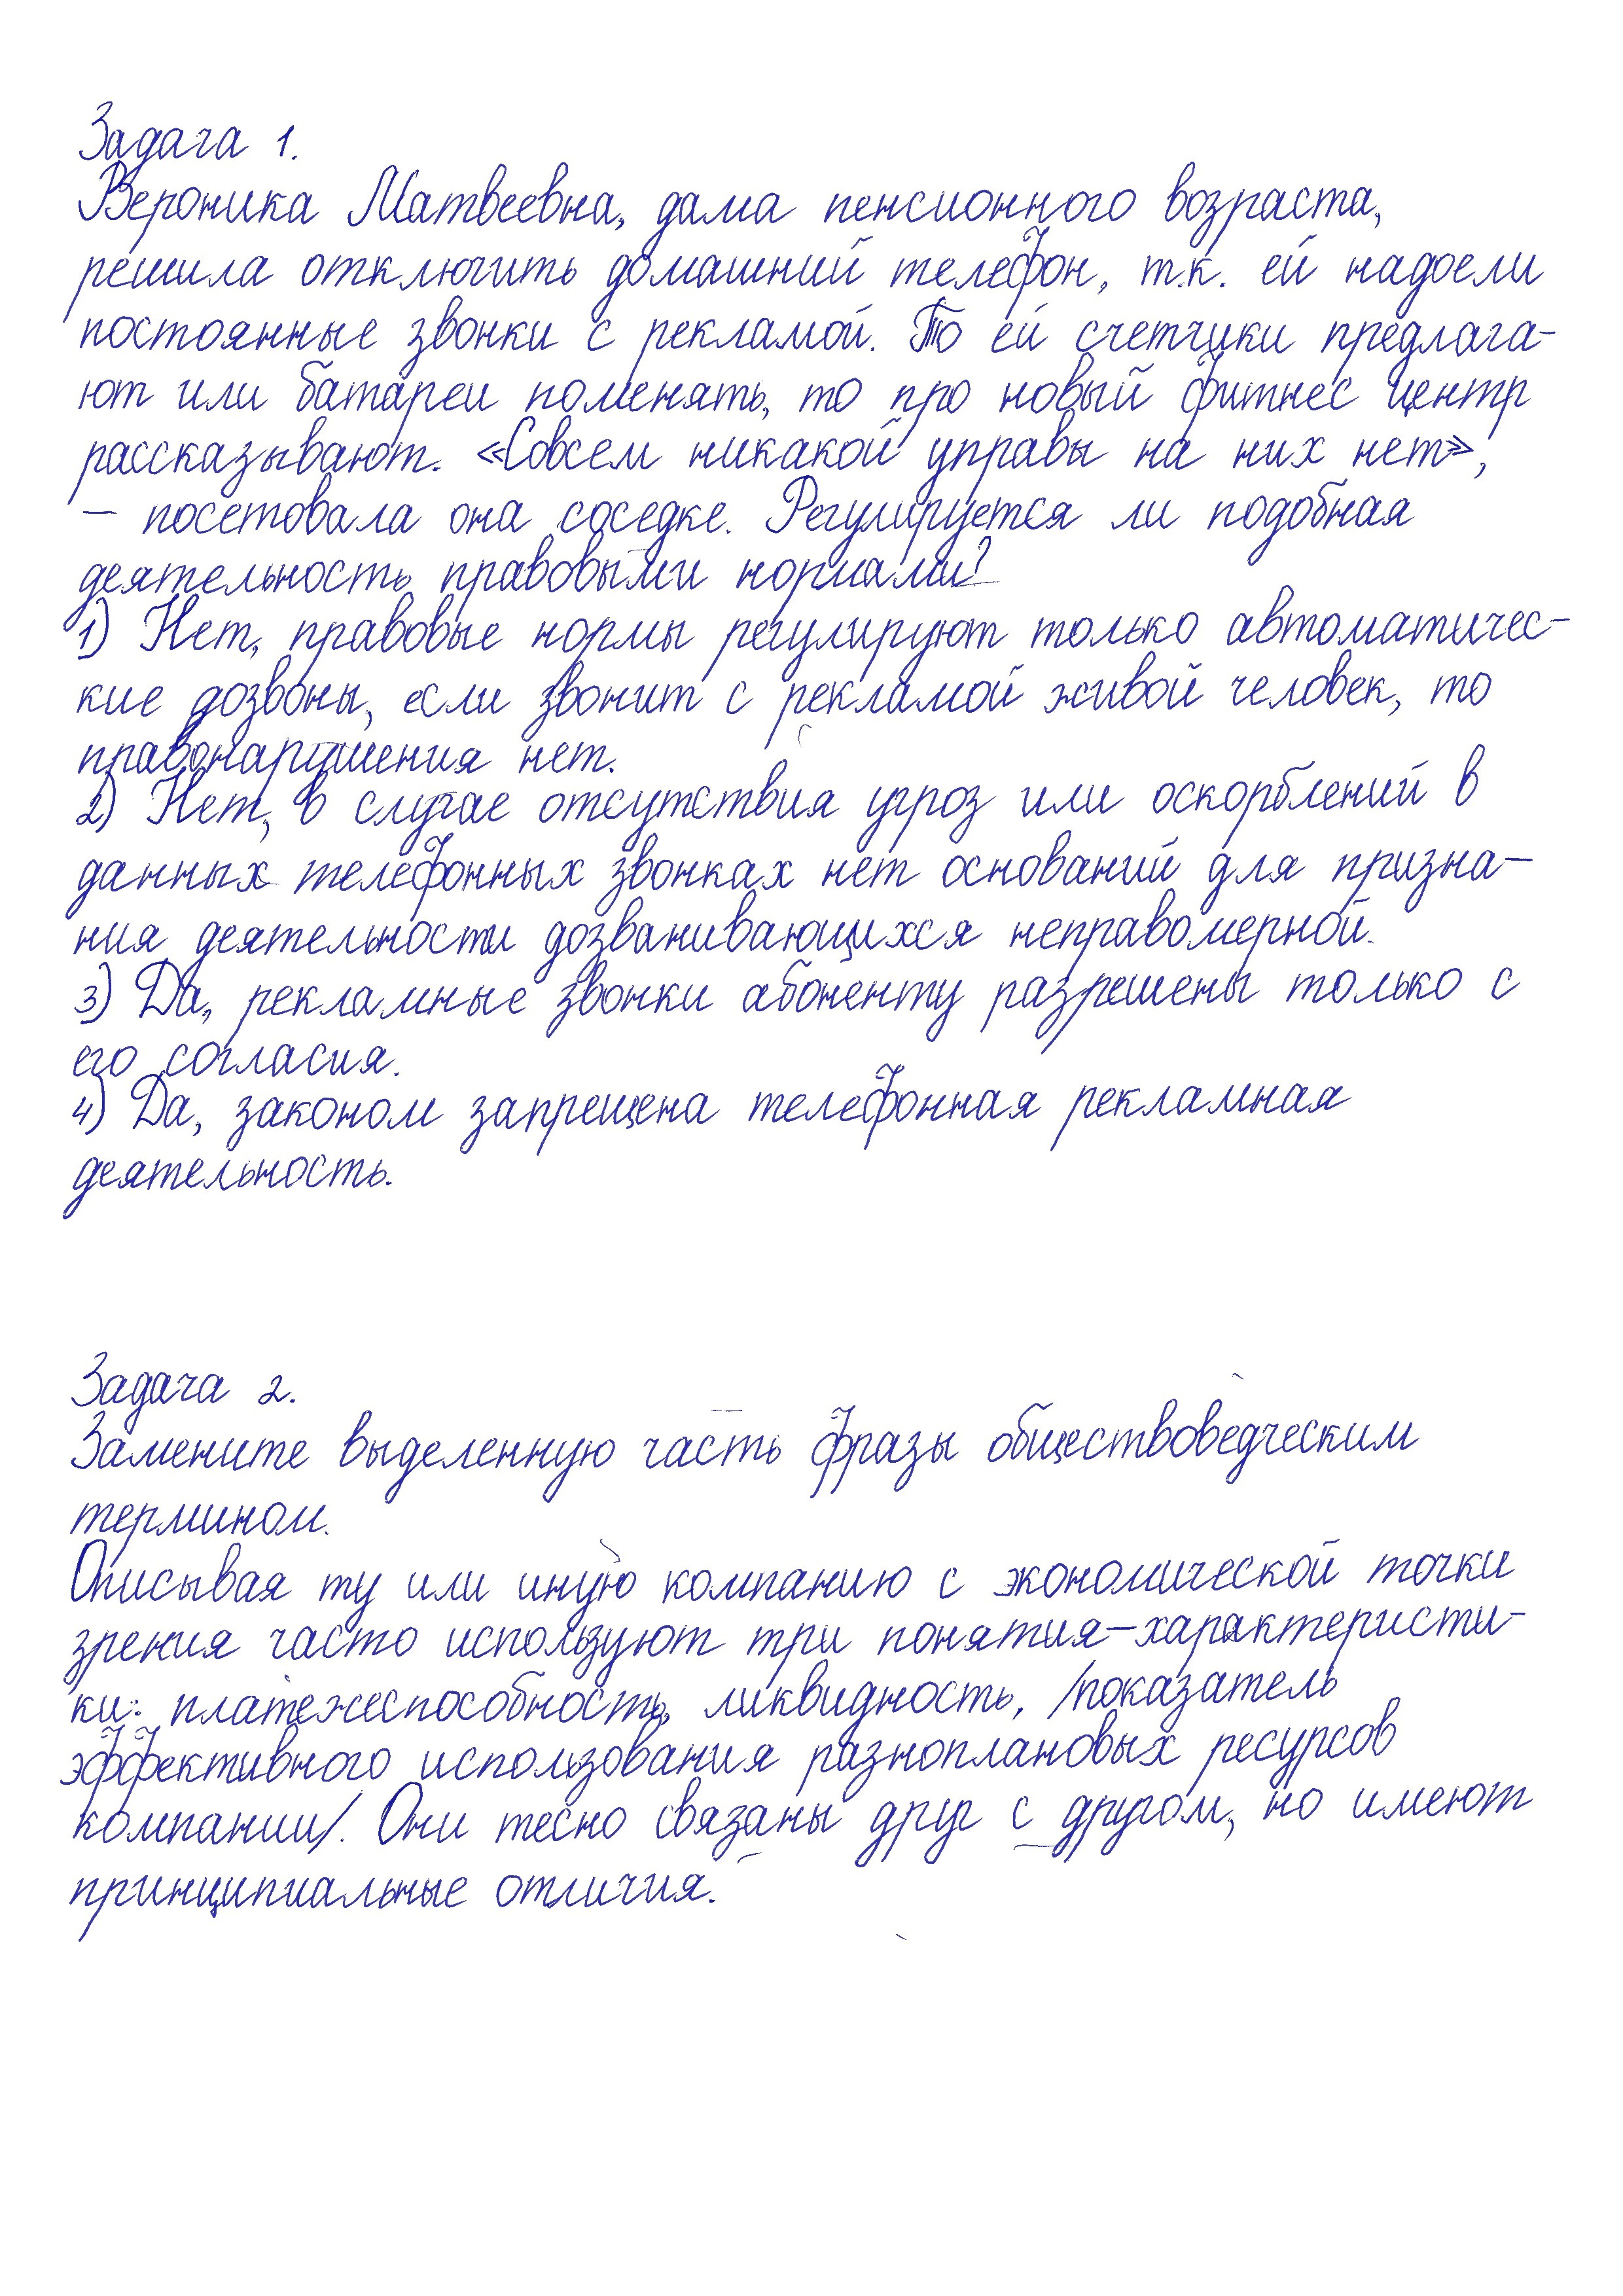 Задача 1.
Вероника Матвеевна, дама пенсионного возраста,
решила отключить домашний телефон, т.к. ей надоели
постоянные звонки с рекламой. То ей счетчики предлага-
ют или батареи поменять, то про новый фитнес центр
рассказывают. «Совсем никакой управы на них нет»,
– посетовала она соседке. Регулируется ли подобная
деятельность правовыми нормами?
1) Нет, правовые нормы регулируют только автоматичес-
кие дозвоны, если звонит с рекламой живой человек, то
правонарушения нет.
2) Нет, в случае отсутствия угроз или оскорблений в
данных телефонных звонках нет оснований для призна-
ния деятельности дозванивающихся неправомерной.
3) Да, рекламные звонки абоненту разрешены только с
его согласия.
4) Да, законом запрещена телефонная рекламная
деятельность.
Задача 2.
Замените выделенную часть фразы обществоведческим
термином.
Описывая ту или иную компанию с экономической точки
зрения часто используют три понятия-характеристи-
ки: платежеспособность, ликвидность, /показатель
эффективного использования разноплановых ресурсов
компании/. Они тесно связаны друг с другом, но имеют
принципиальные отличия.